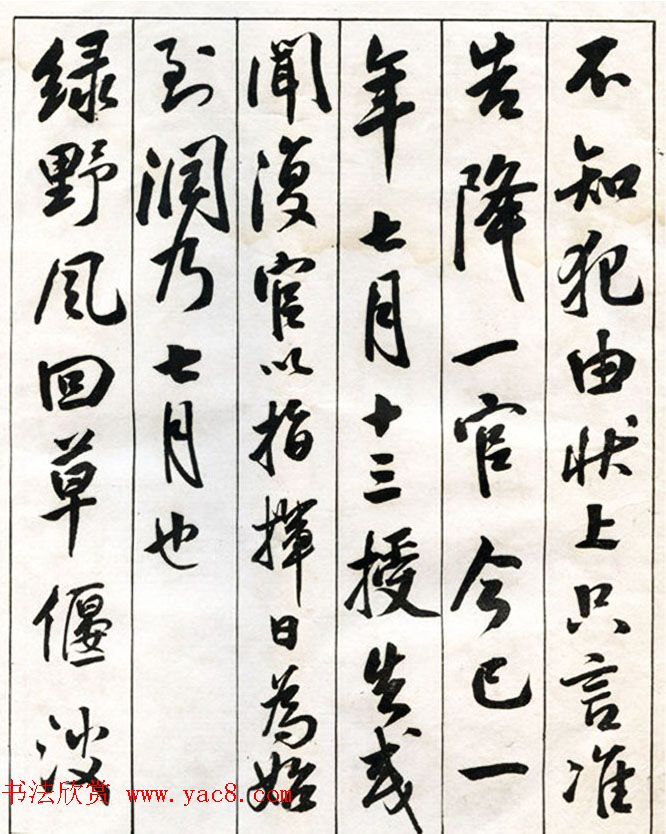 不知犯由状上只言准
告降一官今已一
年七月十三授告或
闻复官以指挥日為始
到润乃七月也
绿野风回草偃波
书法欣赏 www.yac8.com